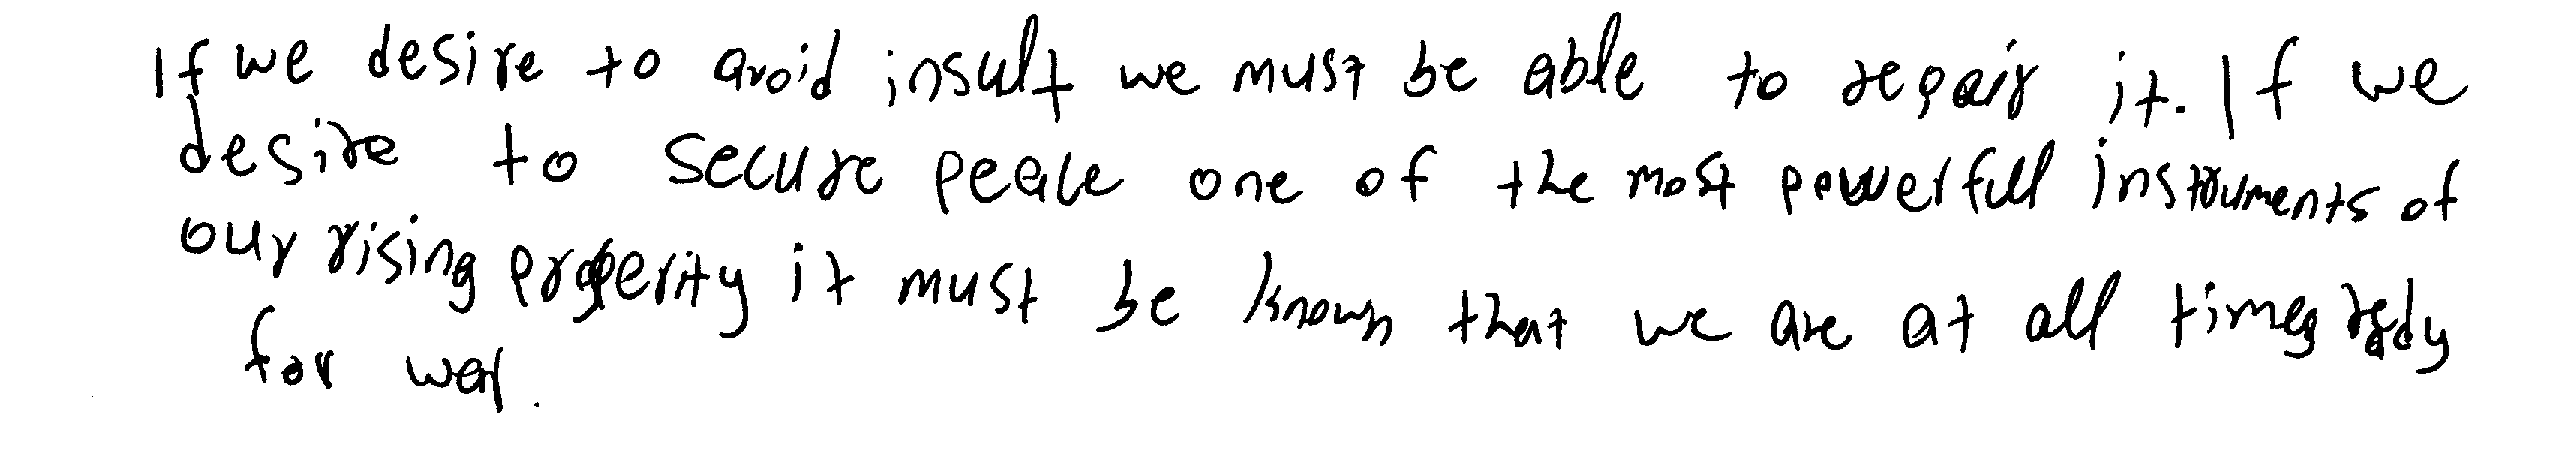 If we desire to avoid insult we must be able to repair it. If we
desire to secure peace one of the most powerfull instruments of
our rising prosperity it must be known that we are at all times ready
for war.